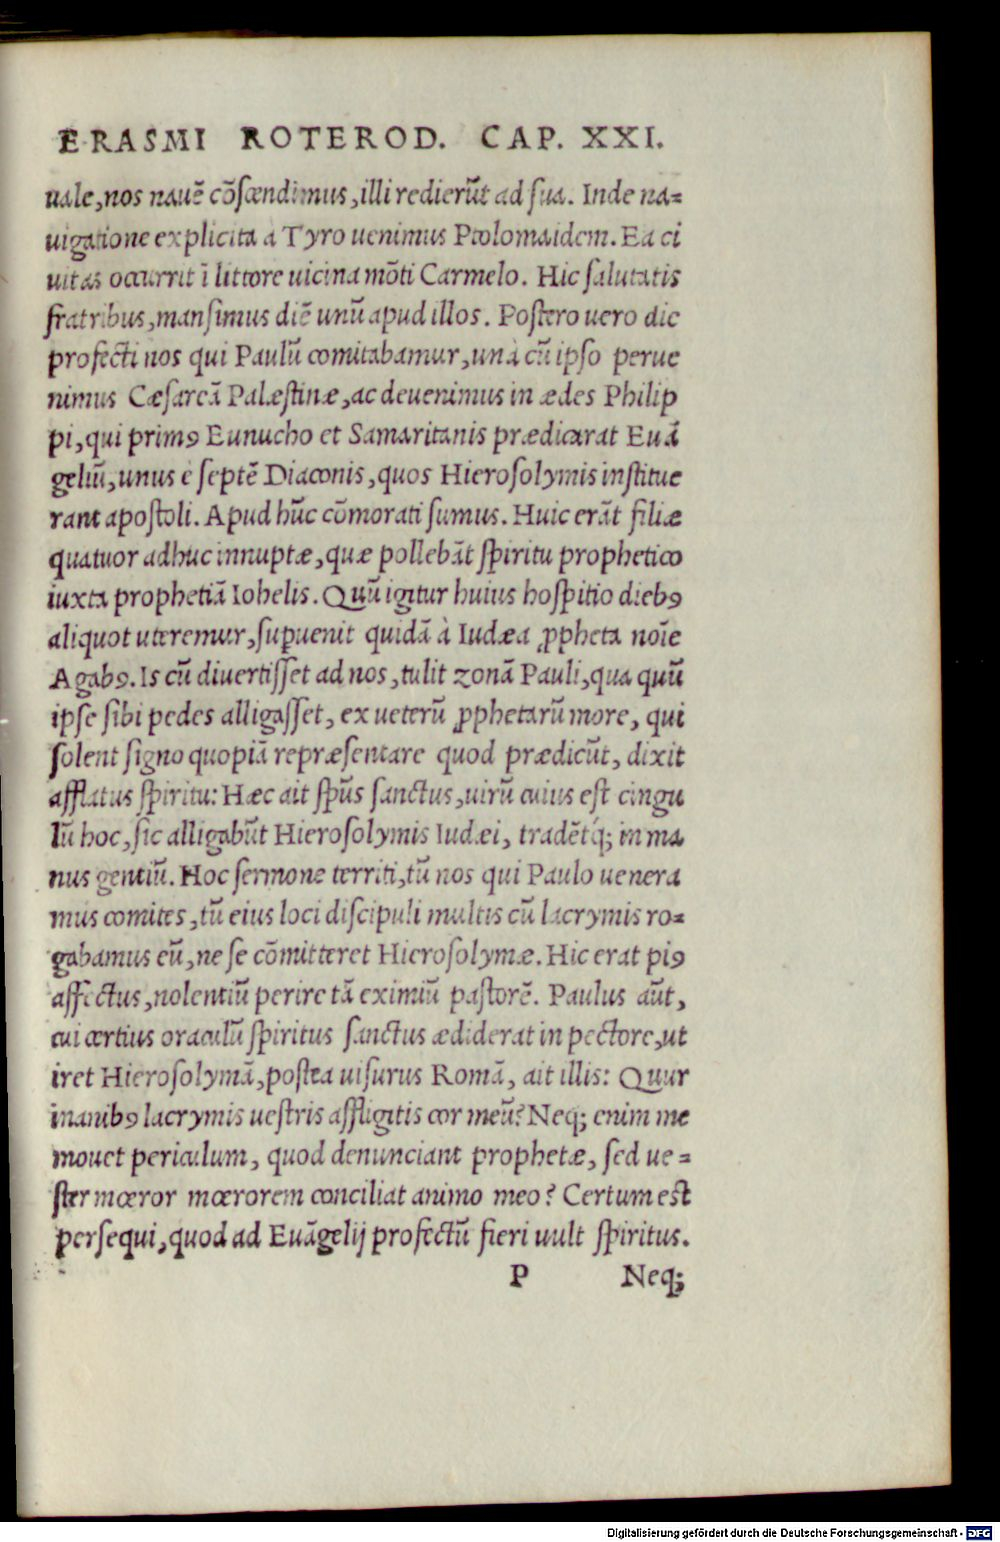 ERASMI ROTEROD. CAP. XXI.
uale, nos nauē cōſcendimus, illi redierūt ad ſua. Inde na=
uigatione explicita a Tyro uenimus Ptolomaidem. Ea ci
uitas occurrit ī littore uicina mōti Carmelo. Hic ſalutatis
fratribus, manſimus diē unū apud illos. Poſtero uero die
profecti nos qui Paulū comitabamur, unà cū ipſo perue
nimus Cæſareā Palæſtinæ, ac deuenimus in ædes Philip
pi, qui primꝰ Eunucho et Samaritanis prædicarat Euā
geliū, unus e ſeptē Diaconis, quos Hieroſolymis inſtitue
rant apoſtoli. Apud hūc cōmorati ſumus. Huic erāt filiæ
quatuor adhuc innuptæ, quæ pollebāt ſpiritu prophetico
iuxta prophetiā Iohelis. Quū igitur huius hoſpitio diebꝰ
aliquot uteremur, ſuꝑuenit quidā à Iudæa ꝓpheta noīe
Agabꝰ. Is cū diuertiſſet ad nos, tulit zonā Pauli, qua quū
ipſe ſibi pedes alligaſſet, ex ueterū ꝓphetarū more, qui
ſolent ſigno quopiā repræſentare quod prædicūt, dixit
afflatus ſpiritu: Hæc ait ſpūs ſanctus, uirū cuius eſt cingu
lū hoc, ſic alligabūt Hieroſolymis Iudæi, tradētq́; in ma
nus gentiū. Hoc ſermone territi, tū nos qui Paulo uenera
mus comites, tū eius loci diſcipuli multis cū lacrymis ro=
gabamus eū, ne ſe cōmitteret Hieroſolymæ. Hic erat piꝰ
affectus, nolentiū perire tā eximiū paſtorē. Paulus aūt,
cui certius oraculū ſpiritus ſanctus ædiderat in pectore, ut
iret Hieroſolymā, poſtea uiſurus Romā, ait illis: Quur
inanibꝰ lacrymis ueſtris affligitis cor meū? Neq; enim me
mouet periculum, quod denunciant prophetæ, ſed ue=
ſter mœror mœrorem conciliat animo meo? Certum eſt
perſequi, quod ad Euāgelij profectū fieri uult ſpiritus.
P Neq;
Digitalisierung gefördert durch die Deutsche Forschungsgemeinschaft - DFG